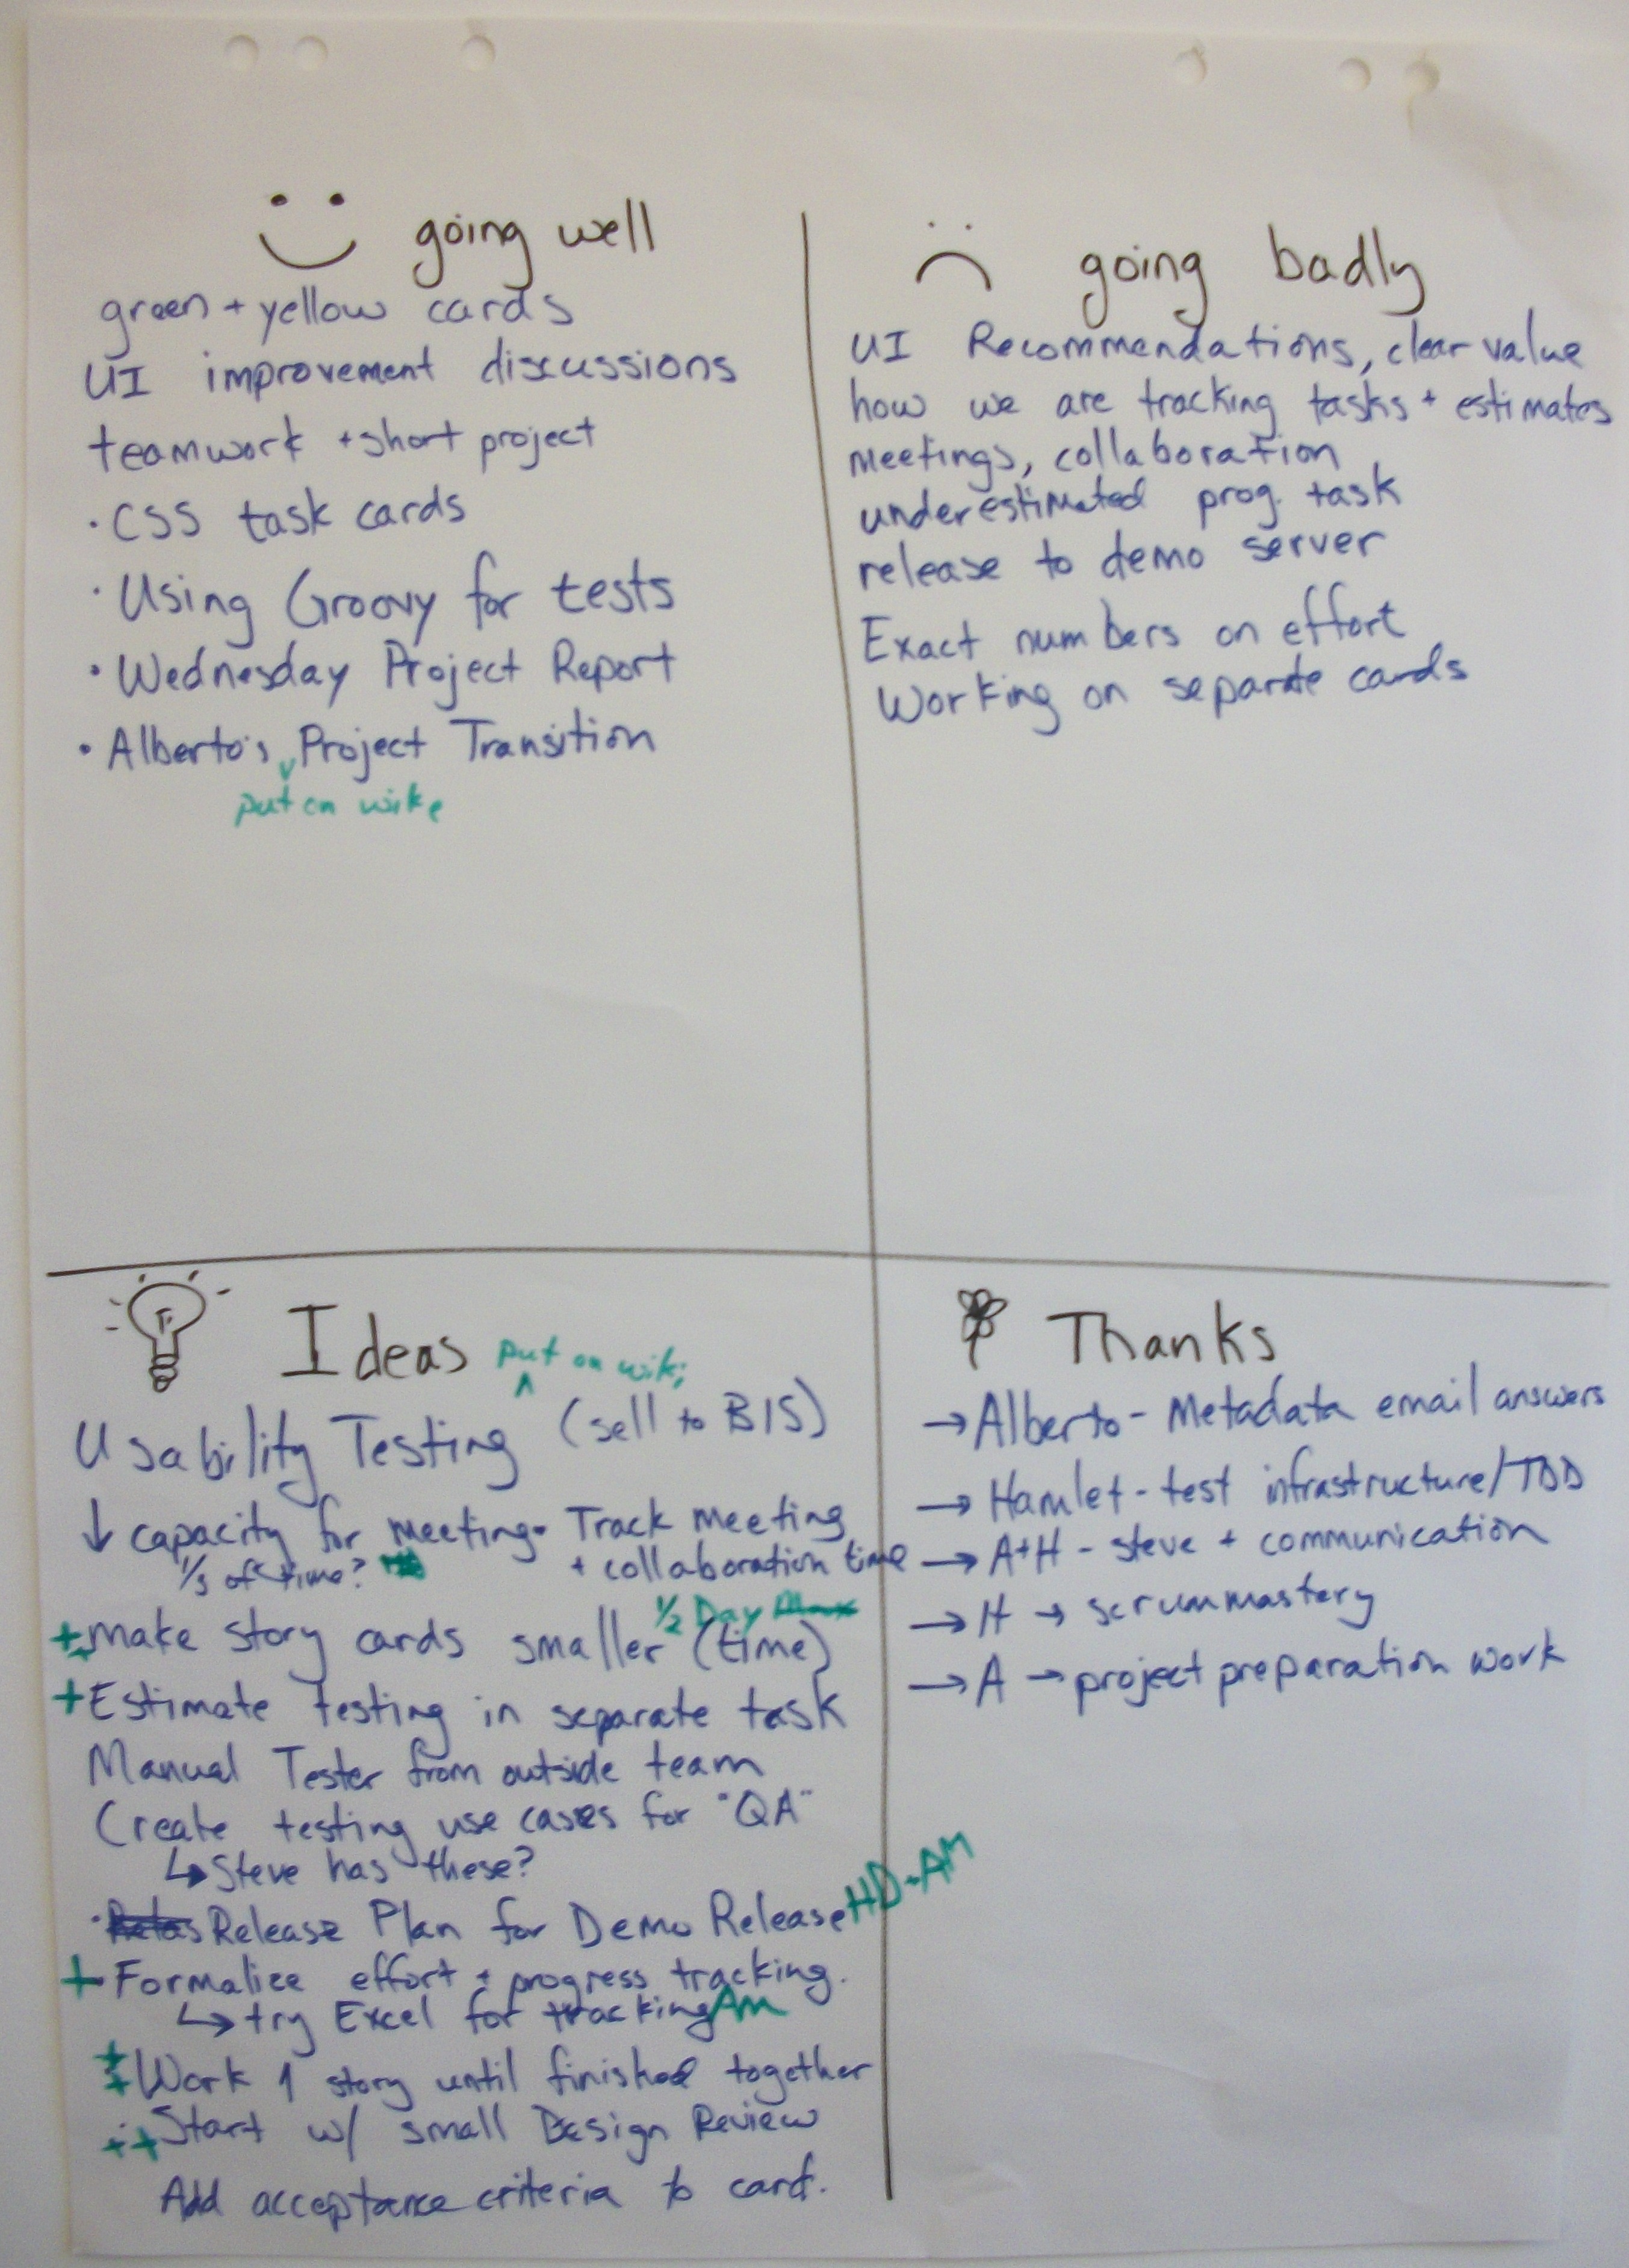 going well
green + yellow cards
UI improvement discussions
teamwork + short project
· CSS task cards
· Using Groovy for tests
· Wednesday Project Report
· Alberto's Project Transition
put on wiki
going badly
UI Recommendations, clear value
how we are tracking tasks + estimates
meetings, collaboration
underestimated prog. task
release to demo server
Exact numbers on effort
Working on separate cards
Ideas
put on wiki
Usability Testing (sell to BIS)
↓ capacity for meeting · Track meeting
1/3 of time? + collaboration time
1/2 Day Max
++ make story cards smaller (time)
+ Estimate testing in separate task
Manual Tester from outside team
Create testing use cases for "QA"
↳ Steve has these?
· Release Plan for Demo Release HD + AM
+ Formalize effort + progress tracking.
↳ try Excel for tracking AM
++ Work 1 story until finished together
++ Start w/ small Design Review
Add acceptance criteria to card.
Thanks
→ Alberto - Metadata email answers
→ Hamlet - test infrastructure/TDD
→ A+H - steve + communication
→ H → scrummastery
→ A → project preparation work